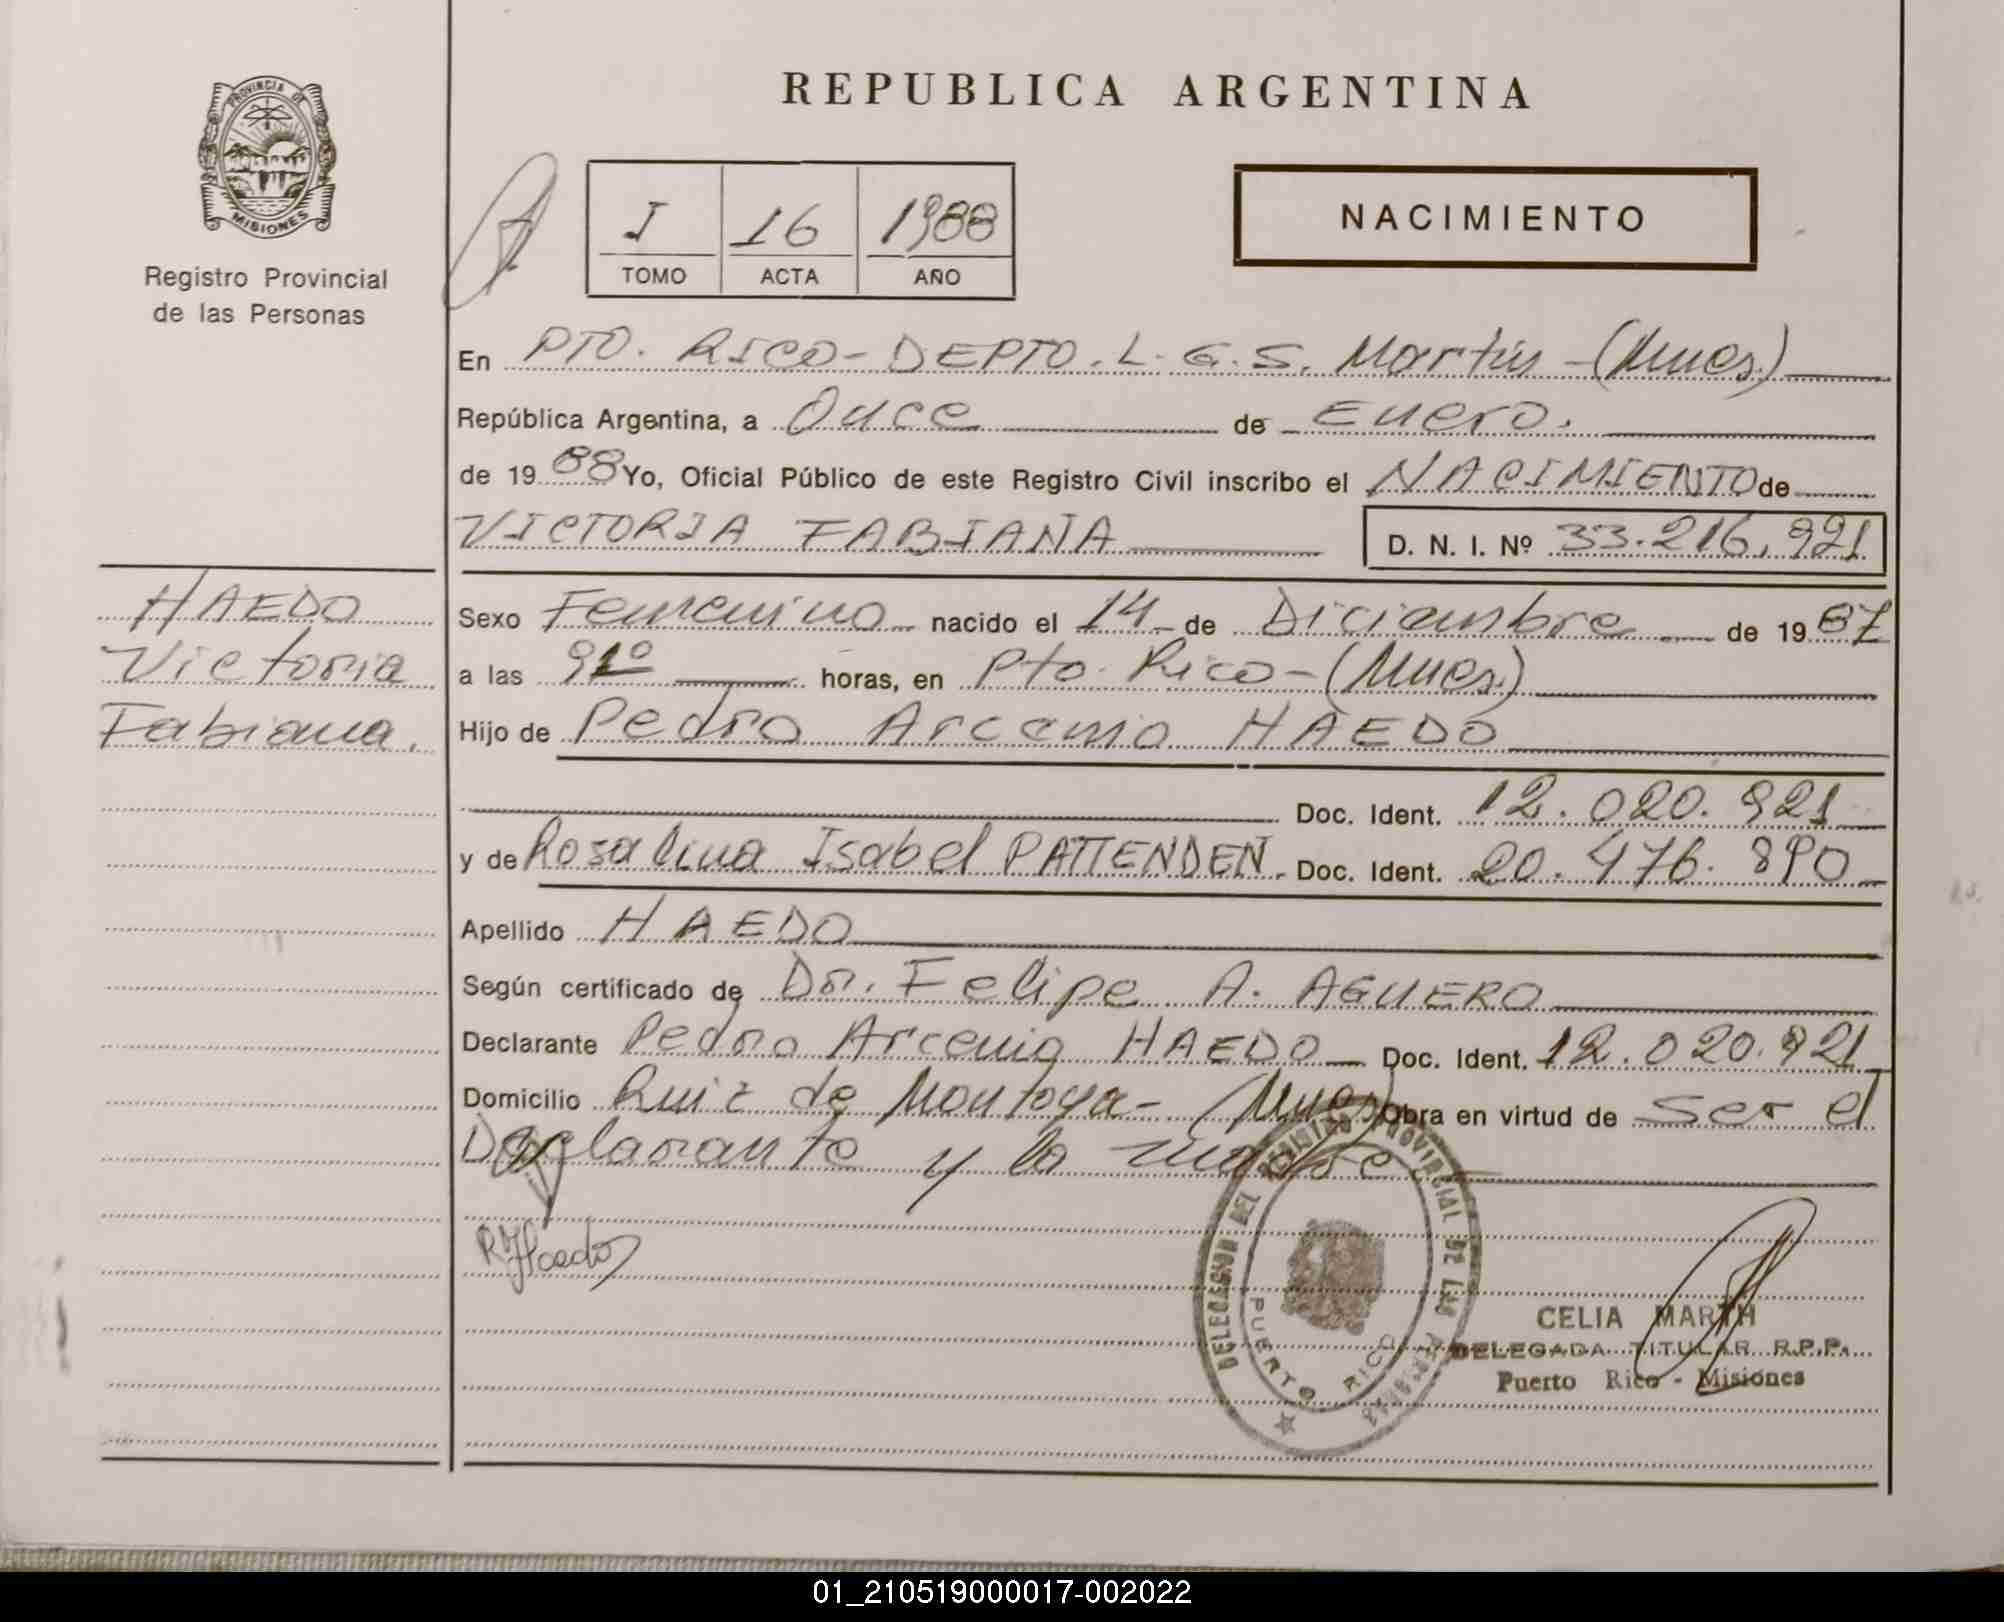 REPUBLICA ARGENTINA
PROVINCIA DE
MISIONES
Registro Provincial
de las Personas
I 16 1988
TOMO ACTA AÑO
NACIMIENTO
En PTO. RICO-DEPTO. L. G. S. Martín-(Mnes.)
República Argentina, a Once de Enero.
de 1988 Yo, Oficial Público de este Registro Civil inscribo el NACIMIENTO de
VICTORIA FABIANA D. N. I. Nº 33.216.921
HAEDO
Victoria
Fabiana.
Sexo Femenino nacido el 14 de Diciembre de 1987
a las horas, en Pto. Rico-(Mnes.)
Hijo de Pedro Arcenio HAEDO
Doc. Ident. 12.020.921
y de Rosalina Isabel PATTENDEN. Doc. Ident. 20.476.890
Apellido HAEDO
Según certificado de Dr. Felipe A. AGUERO
Declarante Pedro Arcenio HAEDO Doc. Ident. 12.020.921
Domicilio Ruiz de Montoya-(Mnes) Obra en virtud de ser el
Declarante y la madre
R Haedo
DELEGACION DEL REGISTRO PROVINCIAL DE LAS PERSONAS
PUERTO RICO
CELIA MARTH
DELEGADA TITULAR R.P.P.
Puerto Rico - Misiones
01_210519000017-002022